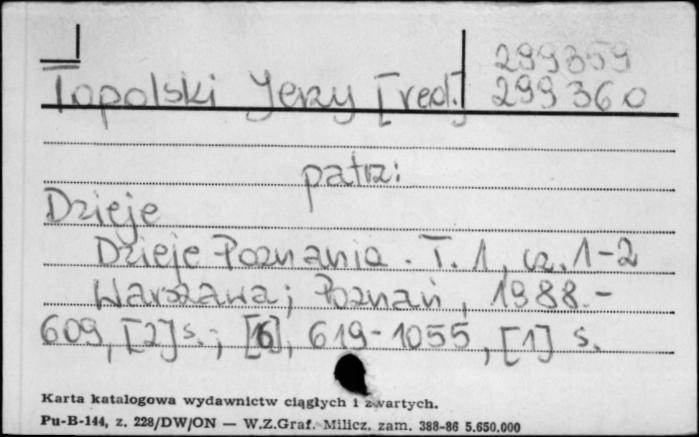 299359
Topolski Jerzy [red.] 299360
patrz:
Dzieje
Dzieje Poznania. T. 1, cz. 1-2
Warszawa; Poznań, 1988.-
609, [2] s.; [6], 619-1055, [1] s.
Karta katalogowa wydawnictw ciągłych i zwartych.
Pu-B-144, z. 228/DW/ON — W.Z.Graf. Milicz. zam. 388-86 5.650.000